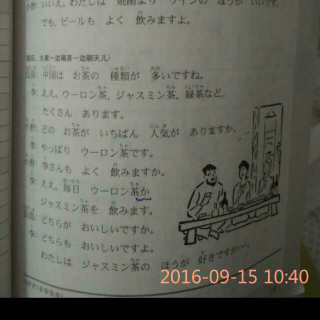 いいえ，わたしは 焼酎より ワインの ほうが いいです。
でも，ビールも よく 飲みますよ。
大家一边喝茶一边聊天儿）
中国は お茶の 種類が 多いですね。
李：ええ。ウーロン茶，ジャスミン茶，緑茶など，
たくさん あります。
どの お茶が いちばん 人気が ありますか。
李：やっぱり ウーロン茶です。
李さんも よく 飲みますか。
李：ええ。毎日 ウーロン茶か
ジャスミン茶を 飲みます。
どちらが おいしいですか。
李：どちらも おいしいですよ。
わたしは ジャスミン茶の ほうが 好きですが…。
2016-09-15 10:40